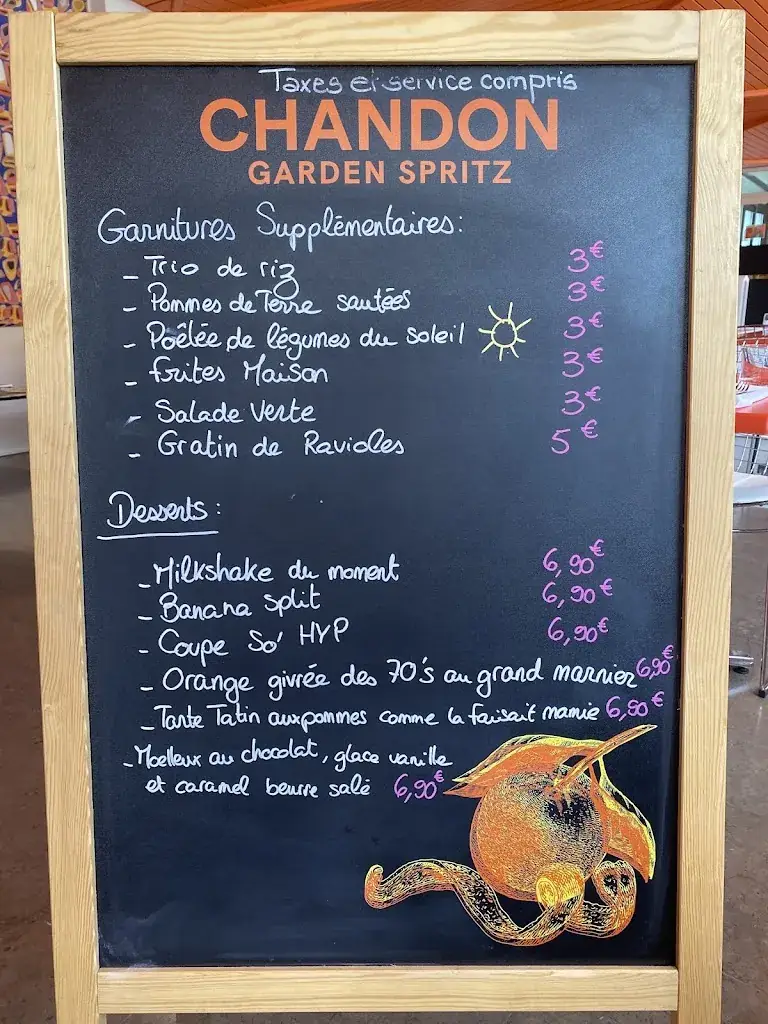 Taxes et service compris
CHANDON
GARDEN SPRITZ
Garnitures Supplémentaires:
- Trio de riz 3€
- Pommes de Terre sautées 3€
- Poêlée de légumes du soleil 3€
- frites Maison 3€
- Salade Verte 3€
- Gratin de Ravioles 5€
Desserts:
- Milkshake du moment 6,90€
- Banana split 6,90€
- Coupe So' HYP 6,90€
- Orange givrée des 70's au grand marnier 6,90€
- Tarte Tatin aux pommes comme la faisait mamie 6,90€
- Moelleux au chocolat, glace vanille
et caramel beurre salé 6,90€